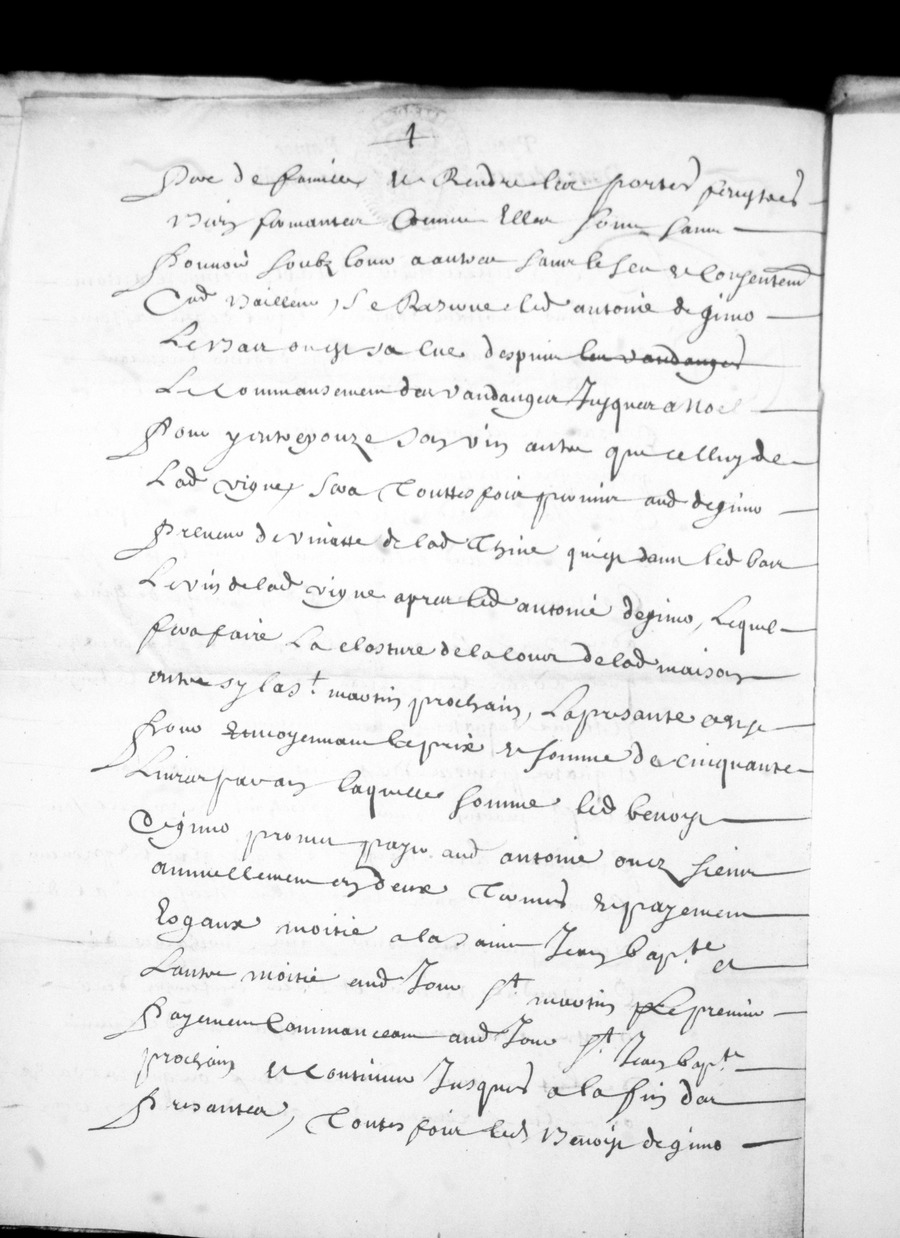 1
Pere de famille et Rendre les portes fenestres
bien fermantes Comme Elles sont sans
Pouvoir soubz louer a autre sans le seu et Consentemt
Dud bailleur, se Reserve led antoine degimo
Le bas ou est sa cue despuis les vandanges
Le Commansement des vandanges Jusques a Noel
Pour y entreposze son vin autre que celluy de
Lad vigne, sera Touttesfois permis aud degimo
Preneur de vinasse de lad Thine quest dans led bas
Le vin de lad vigne apres led antoine degimo, Lequel
fera faire La closture de la Cour de lad maison
entre sy la st martin prochain, La presante est
pour Et moyennant le prix et somme de cinquante
Livres par an laquelle somme led benoist
degimo promet payer aud antoine ou es siens
annuellement en deux Termes et payement
Esgaux moitie a la saint Jean bapte et
Lautre moitie aud Jour st martin Le premier
Payement Commanceant aud Jour st Jean bapte
prochain et Continuer Jusques a la fin des
Presantes, Toutes fois led Benoist degimo